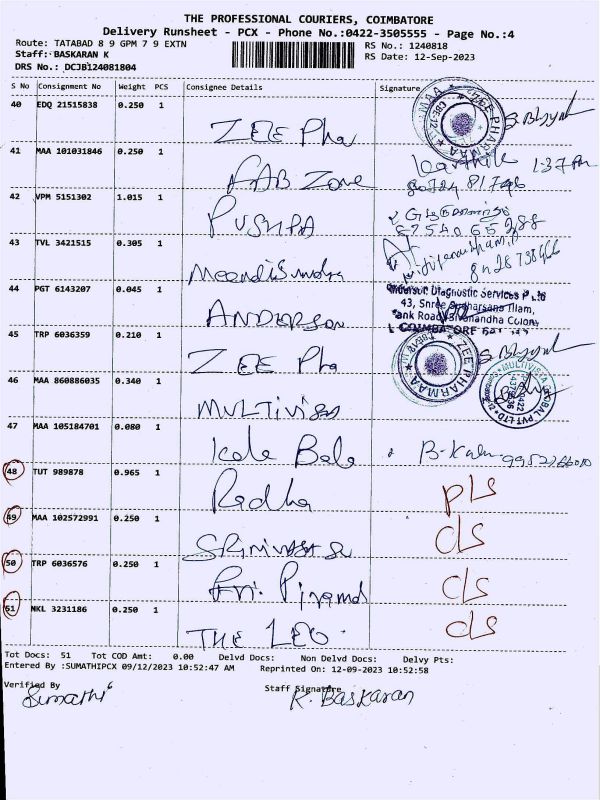 THE PROFESSIONAL COURIERS, COIMBATORE
Delivery Runsheet - PCX - Phone No.:0422-3505555 - Page No.:4
Route: TATABAD 8 9 GPM 7 9 EXTN RS No.: 1240818
Staff: BASKARAN K RS Date: 12-Sep-2023
DRS No.: DCJB124081804
S No Consignment No Weight PCS Consignee Details Signature
40 EDQ 21515838 0.250 1
ZEE Pha
41 MAA 101031846 0.250 1 Karthik 1:37 Pm
FAB Zone
42 VPM 5151302 1.015 1
PUSHPA
43 TVL 3421515 0.305 1
44 PGT 6143207 0.045 1 Diagnostic Services P Ltd
43, Shree
ANDERSON Road Sivanandha Colony
COIMBATORE
45 TRP 6036359 0.210 1 ZEE PHARMAA
ZEE Pha
46 MAA 860886035 0.340 1 MULTIVISTA GLOBAL PVT LTD
47 MAA 105184701 0.080 1
Kala Bala
48 TUT 989878 0.965 1
Radha PLS
49 MAA 102572991 0.250 1
CLS
50 TRP 6036576 0.250 1
CLS
51 NKL 3231186 0.250 1
THE LEO CLS
Tot Docs: 51 Tot COD Amt: 0.00 Delvd Docs: Non Delvd Docs: Delvy Pts:
Entered By :SUMATHIPCX 09/12/2023 10:52:47 AM Reprinted On: 12-09-2023 10:52:58
Verified By Staff Signature
Sumathi K. Baskaran